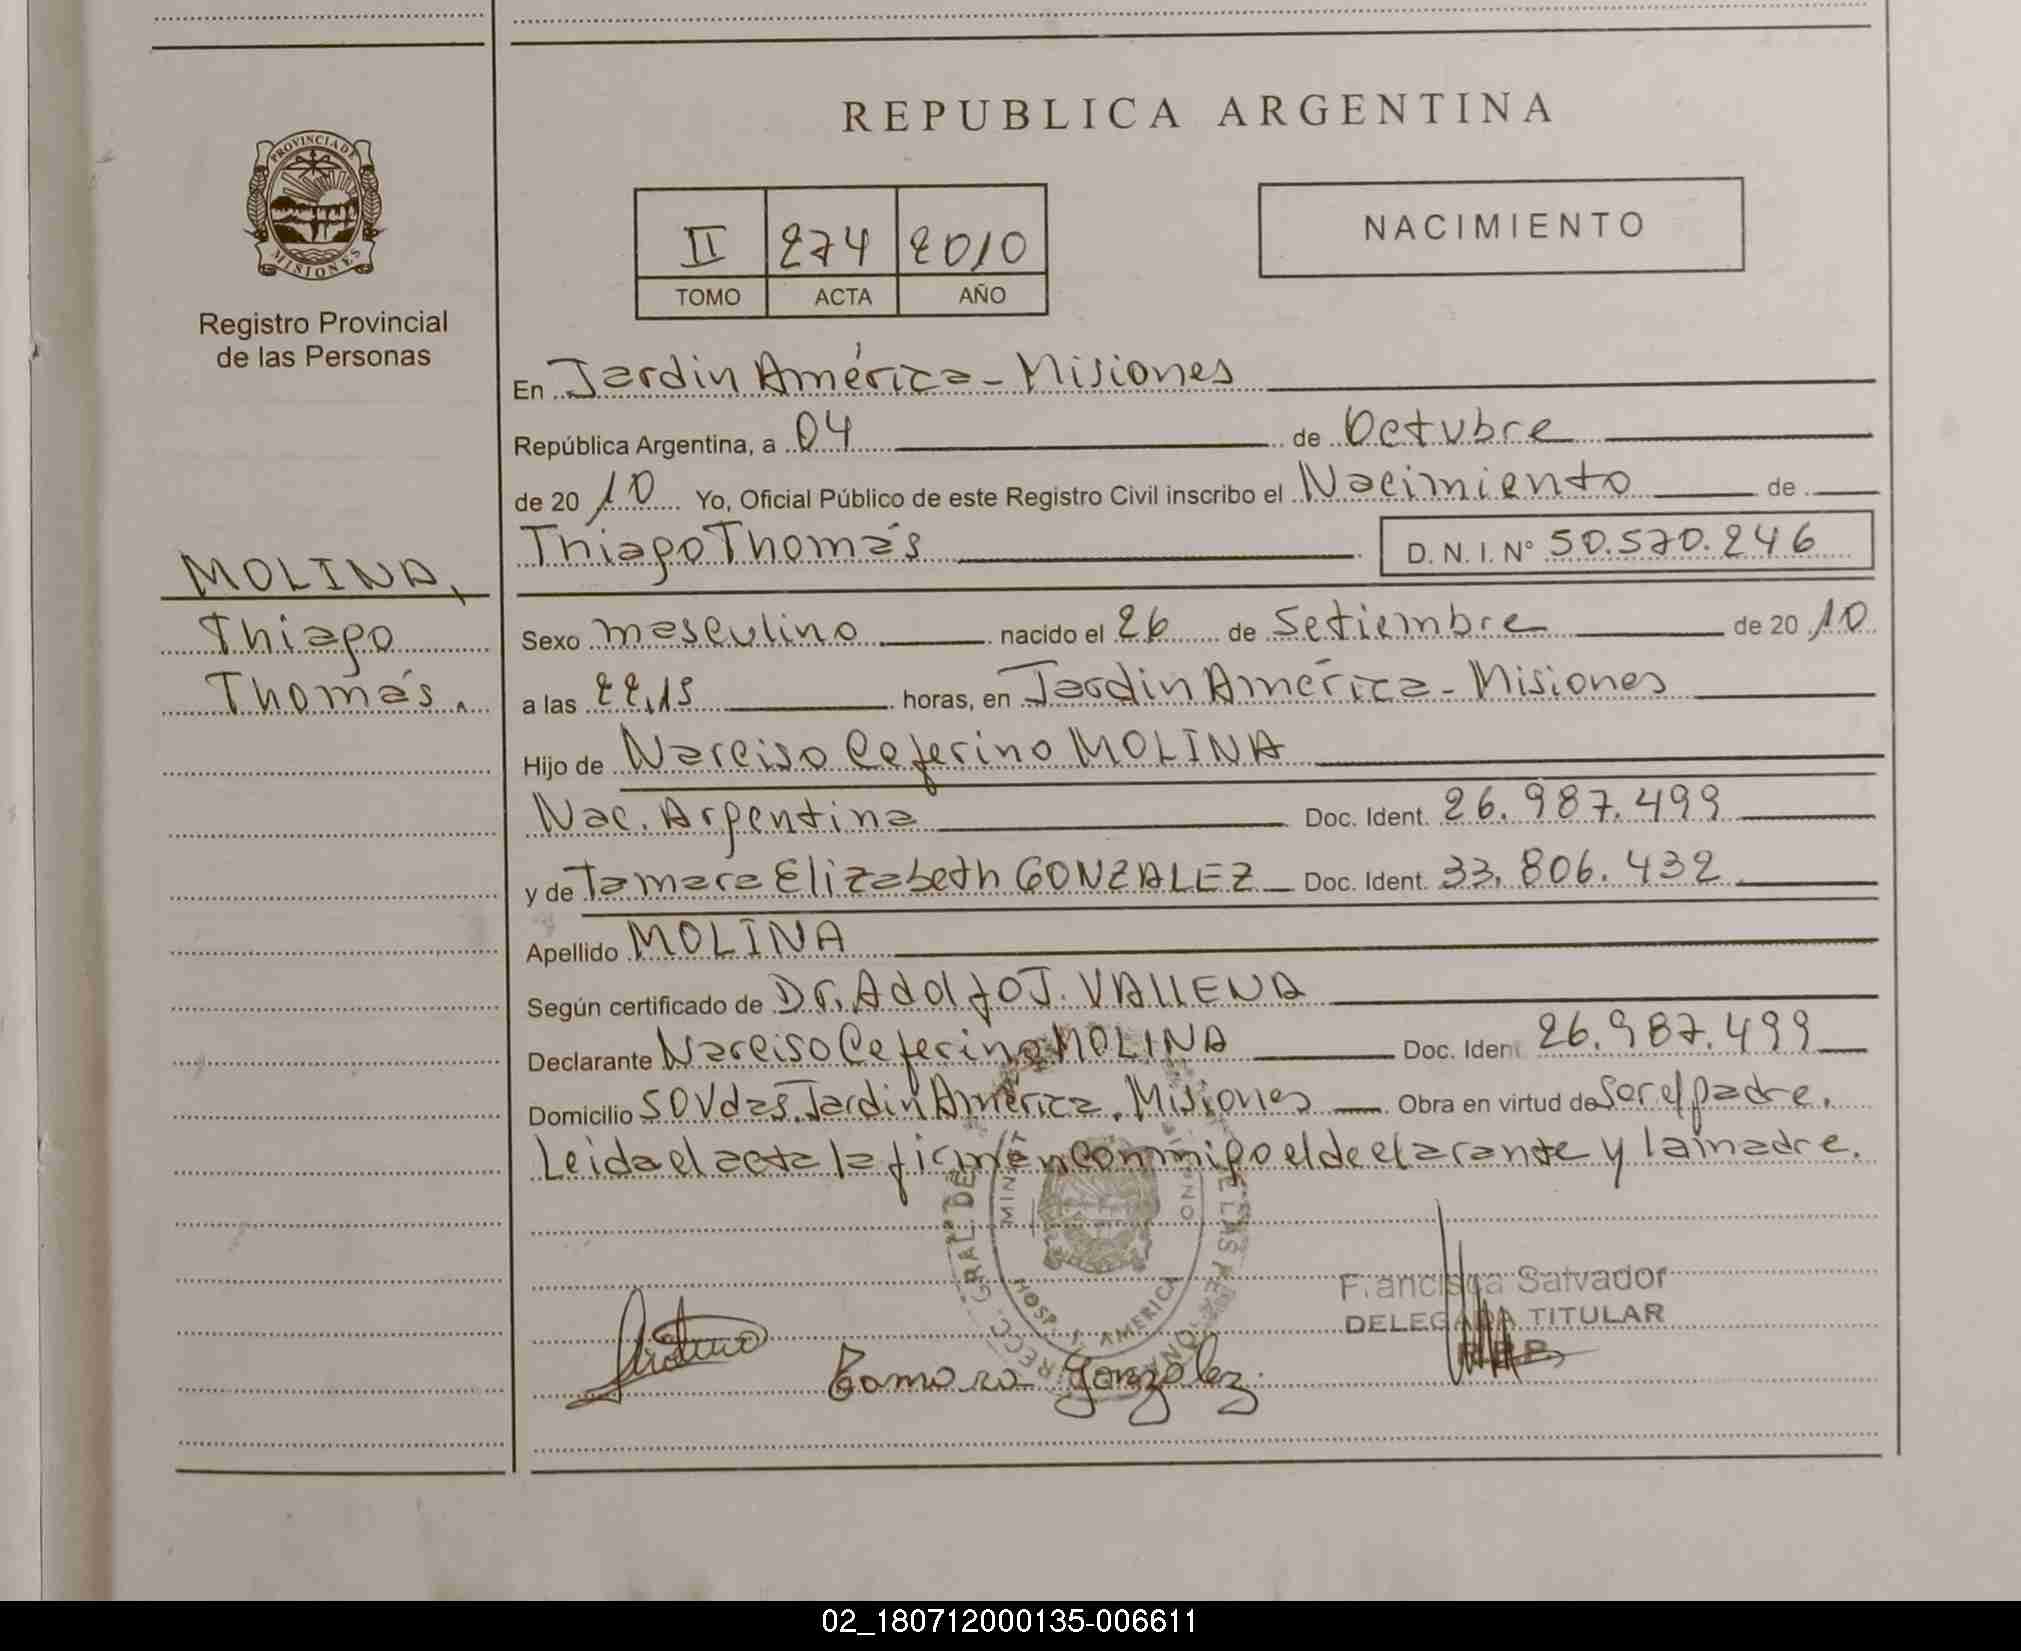 REPUBLICA ARGENTINA
PROVINCIA DE
MISIONES
Registro Provincial
de las Personas
II 274 2010
TOMO ACTA AÑO
NACIMIENTO
En Jardin América - Misiones
República Argentina, a 04 de Octubre
de 2010 Yo, Oficial Público de este Registro Civil inscribo el Nacimiento de
Thiago Thomás D.N.I.Nº 50.570.246
MOLINA,
Thiago
Thomás.
Sexo masculino nacido el 26 de Setiembre de 2010
a las 22,15 horas, en Jardin América - Misiones
Hijo de Narciso Ceferino MOLINA
Nac. Argentina Doc. Ident. 26.987.499
y de Tamara Elizabeth GONZALEZ Doc. Ident. 33.806.432
Apellido MOLINA
Según certificado de Dr. Adolfo J. VALLENA
Declarante Narciso Ceferino MOLINA Doc. Ident 26.987.499
Domicilio 50 Vdas. Jardin América. Misiones Obra en virtud de ser el padre.
Leida el acta la firman conmigo el declarante y la madre.
HOSP. J. AMERICA
Francisca Salvador
DELEGADA TITULAR
R.P.P.
Tamara Gonzalez
02_180712000135-006611